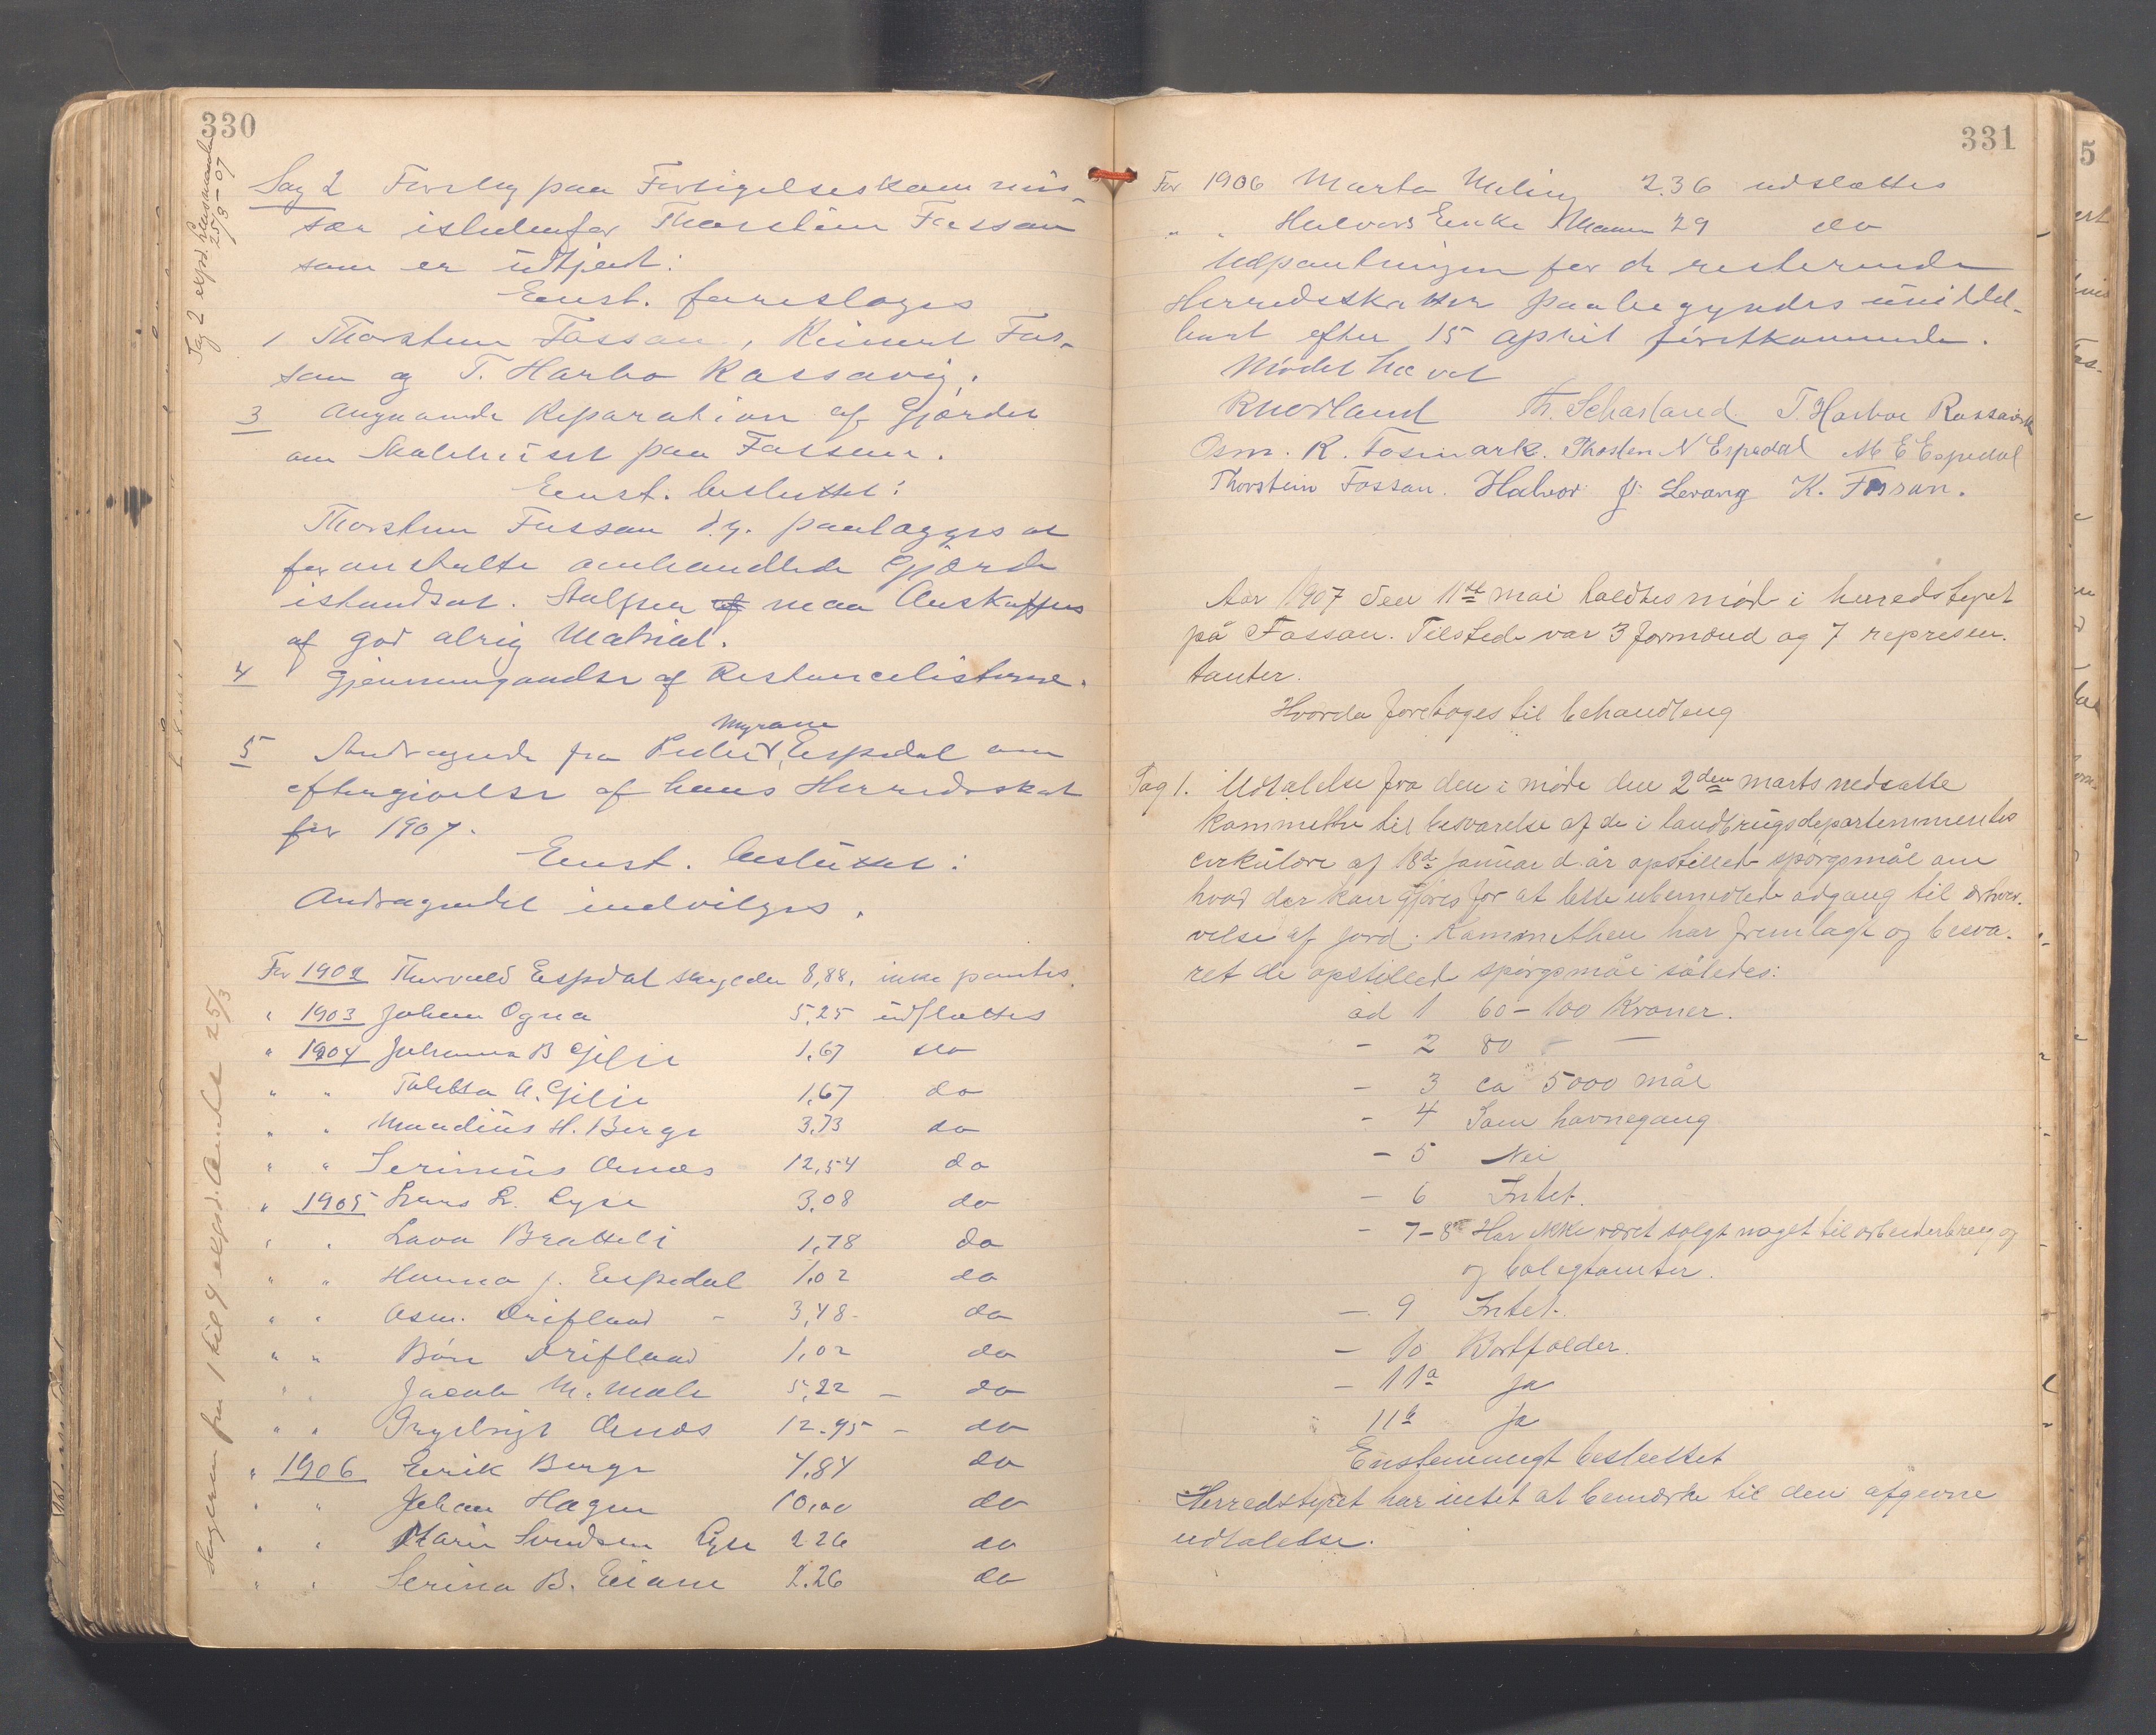 330
Sag 2 expd. Lensmanden
25/3-07
Sag 2 Forslag paa Forligelseskommis-
sær istedenfor Thorstein Fossan
som er udtjent:
Enst. foresloges
1 Thorstein Fossan, Reinert Fos-
san og T. Harbo Rossavig.
3 Angaaende Reparation af Gjærdet
om Skolehuset paa Fossan.
Enst. besluttet:
Thorstein Fossan d.y. paalægges at
foranstalte omhandlede Gjærde
istandsat. Stolper af maa Anskaffes
af god alrig Matrial.
4 Gjennemgaaelse af Restancelisterne.
5 Andragende fra Peder Myrane Espedal om
eftergivelse af hans Herredsskat
for 1907.
Enst. besluttet:
Andragendet indvilges.
For 1902 Thorvald Espedal 8,88. ikke pantes.
" 1903 Johan Ogna 5,25 udslettes
" 1904 Johanna B Gjilje 1,67 do
" " Tolletta A. Gjilje 1,67 do
" " Mundius H. Berge 3,73 do
" " Serinius Østnæs 12,54 do
" 1905 Hans L. Lyse 3,08 do
" " Lava Bratteli 1,78 do
" " Hanna J. Espedal 1,02 do
" " Asm. Drifland - 3,48 - do
" " Bór Drifland 1,02 do
" " Jacob M. Mæle 5,22 - do
" " Ingebrigt 12.95 - do
" 1906 Eirik Berge 4,84 do
" " Johan Hagen 10,00 do
" " Marie Svendsen Lyse 2 26 do
" " Serina B. Eiane 2.26 do
Sagerne fra 1 til 4 expd. Amtet 25/3
331
For 1906 Marta Meling 2.36 udslettes
" " Halvors Enke Maan 29 do
Udpantningen for de resterende
Herredsskatter paabegyndes umiddel-
bart efter 15 april førstkommende.
Mødet hævet
R Norland Th. Scharland T. Harboe Rossavik
Osm. R. Fosmark. Thosten N Espedal M E Espedal
Thorstein Fossan. Halvor J. Levang K. Fossan.
Aar 1907 den 11te mai holdtes møde i herredstyret
på Fossan. Tilstede var 3 formænd og 7 represen-
tanter.
Hvorda foretoges til behandling
Sag 1. Udtalelse fra den i møde den 2den marts nedsatte
kommitte til besvarelse af de i landbrugsdepartementets
cirkulære af 18de januar d. år opstillede spørgsmål om
hvad der kan gjøres for at lette ubemidlede adgang til erhver-
velse af jord. Kommitheen har fremlagt og besva-
ret de opstillede spørgsmål således:
ad 1 60 - 100 Kroner.
- 2 80 - -
- 3 ca 5000 mål
- 4 Som havnegang
- 5 Nei
- 6 Intet.
- 7-8 Har ikke været solgt noget til arbeiderbrug og
og boligtomter.
- 9 Intet.
- 10 Bortfalder.
- 11a Ja
11b Ja
Enstemmigt besluttet
Herredstyret har intet at bemærke til den afgivne
udtalelse.
5